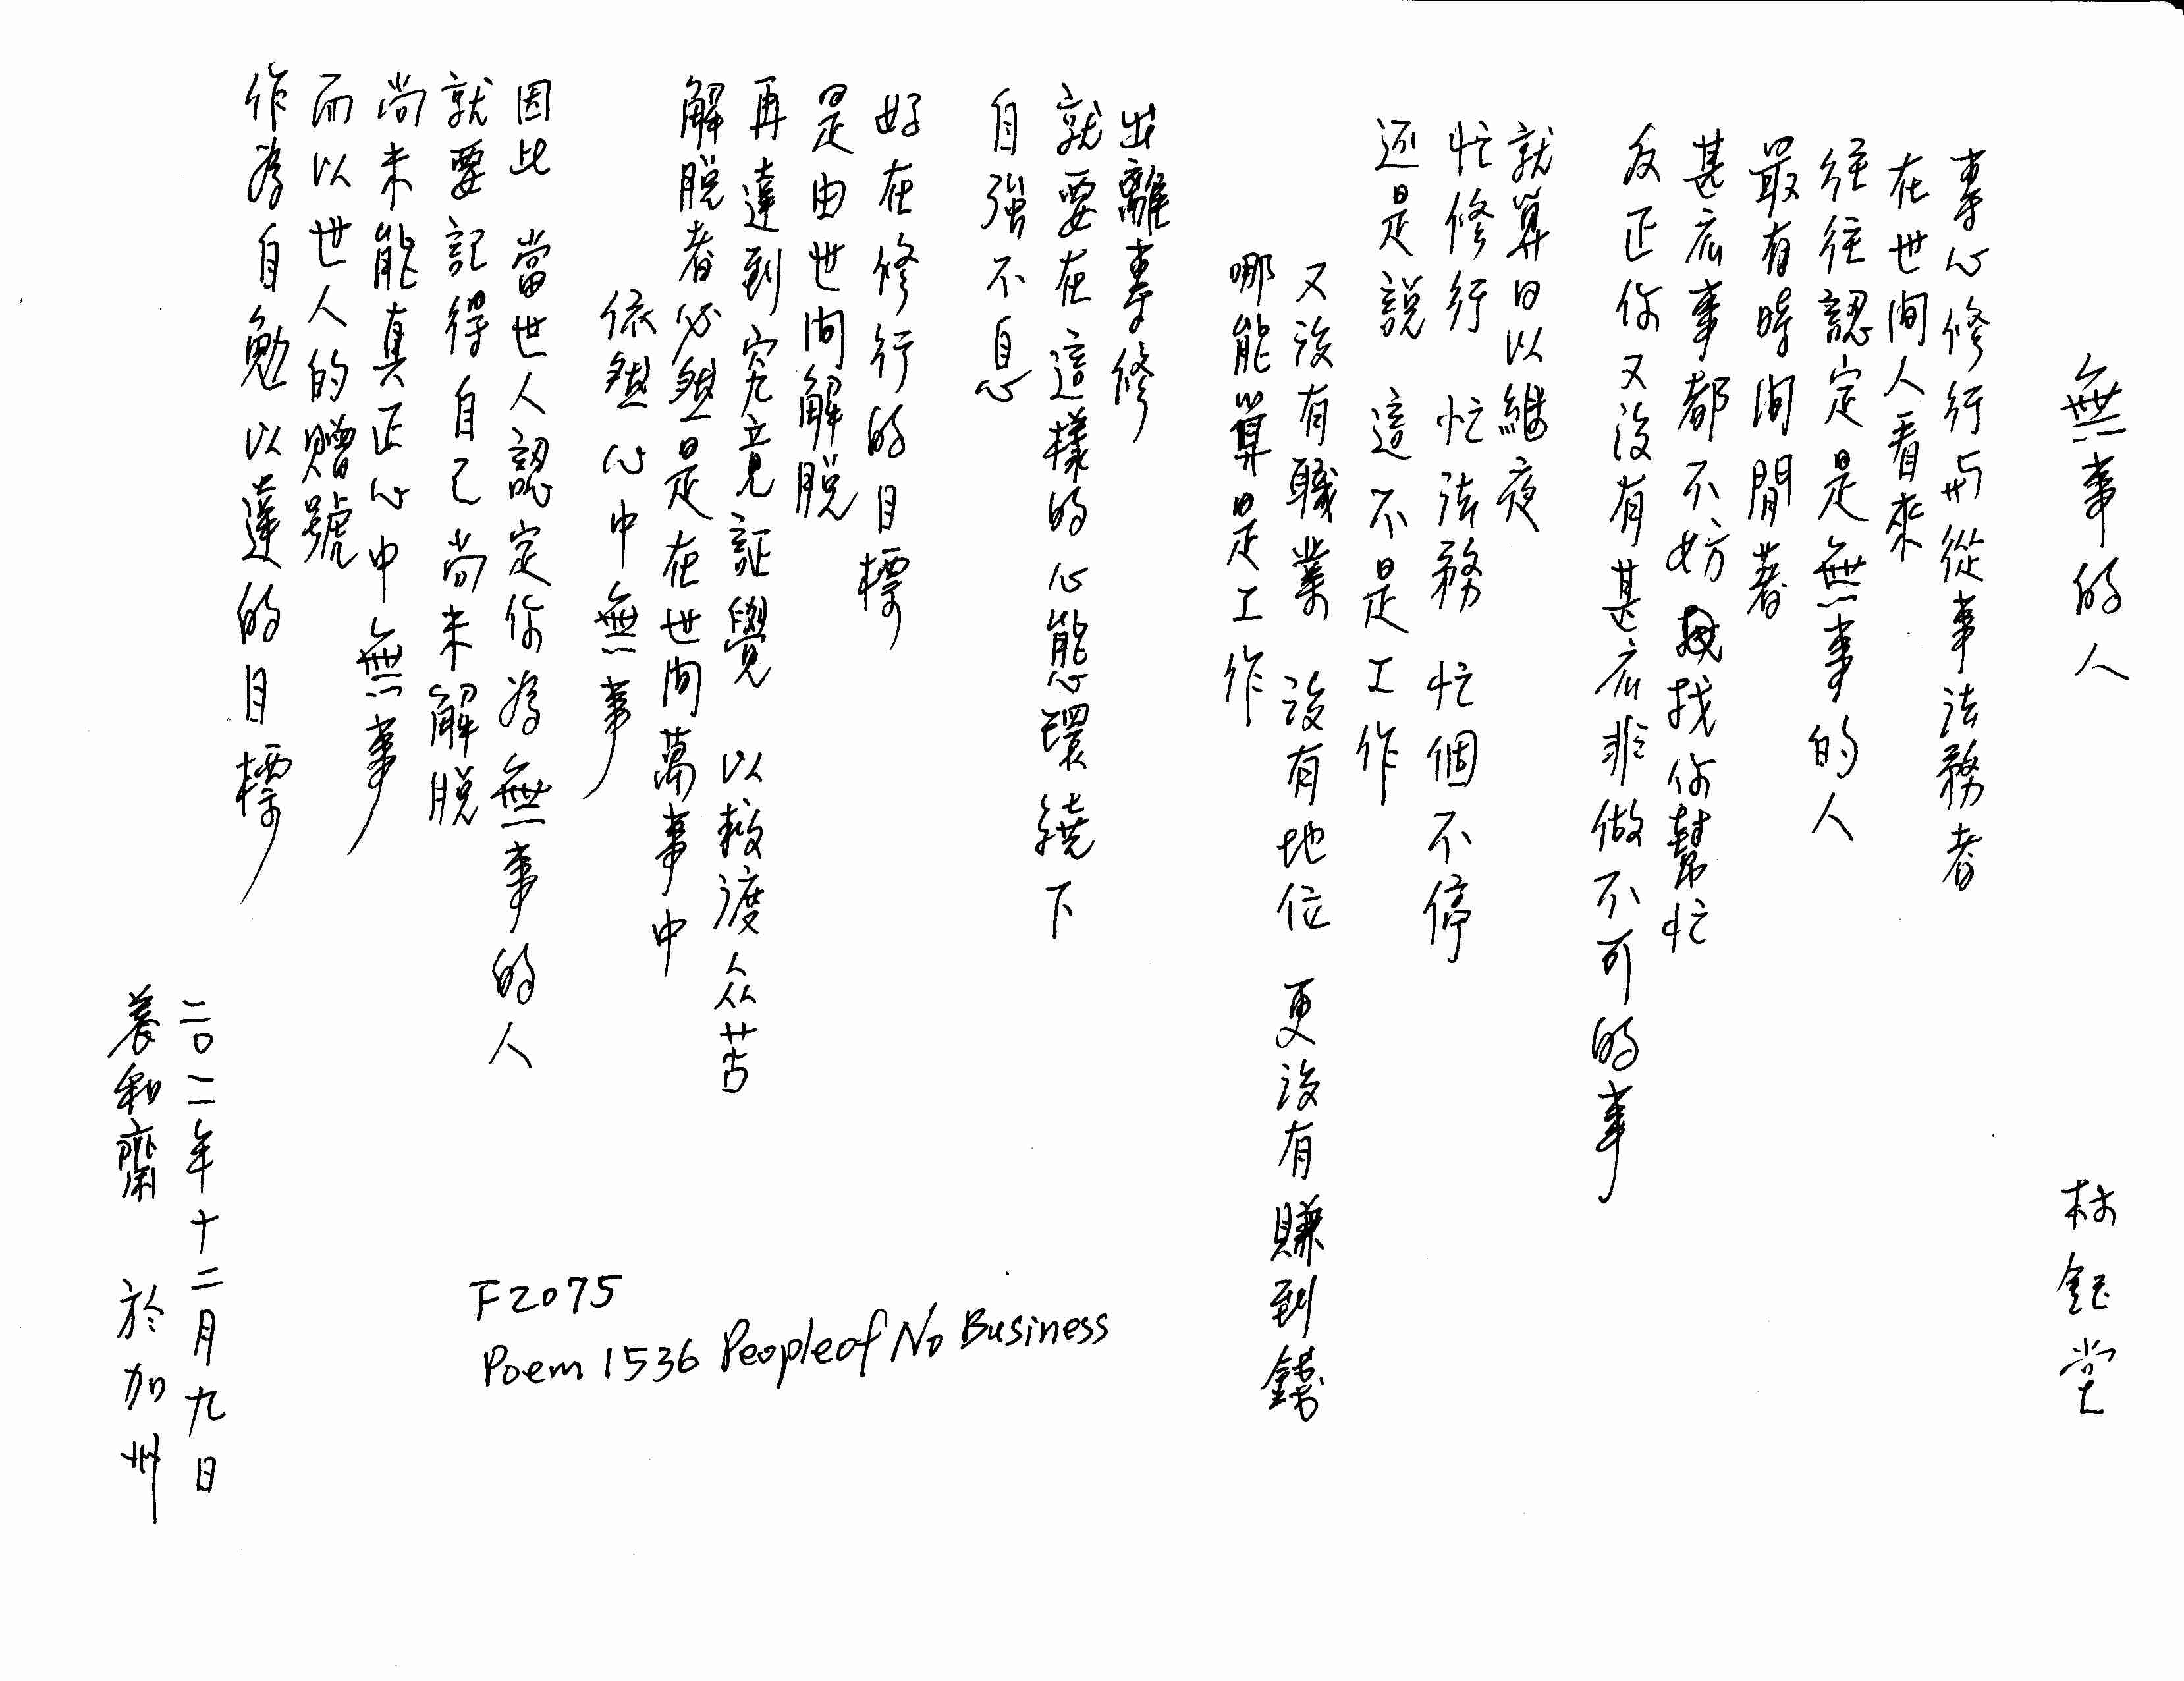 無事的人 林鈺堂
專心修行與從事法務者
在世間人看來
往往認定是無事的人
最有時間閒著
甚麼事都不妨找你幫忙
反正你又沒有甚麼非做不可的事
就算日以繼夜
忙修行 忙法務 忙個不停
還是說 這不是工作
又沒有職業 沒有地位 更沒有賺到錢
哪能算是工作
出離專修
就要在這樣的心態環繞下
自強不息
好在修行的目標
是由世間解脫
再達到究竟証覺 以救渡众苦
解脫者必然是在世間萬事中
依然心中無事
因此 當世人認定你為無事的人
就要記得自己尚未解脫
尚未能真正心中無事
而以世人的贈號
作為自勉以達的目標
二〇一一年十二月九日
養和齋 於加州
F2075
Poem 1536 People of No Business